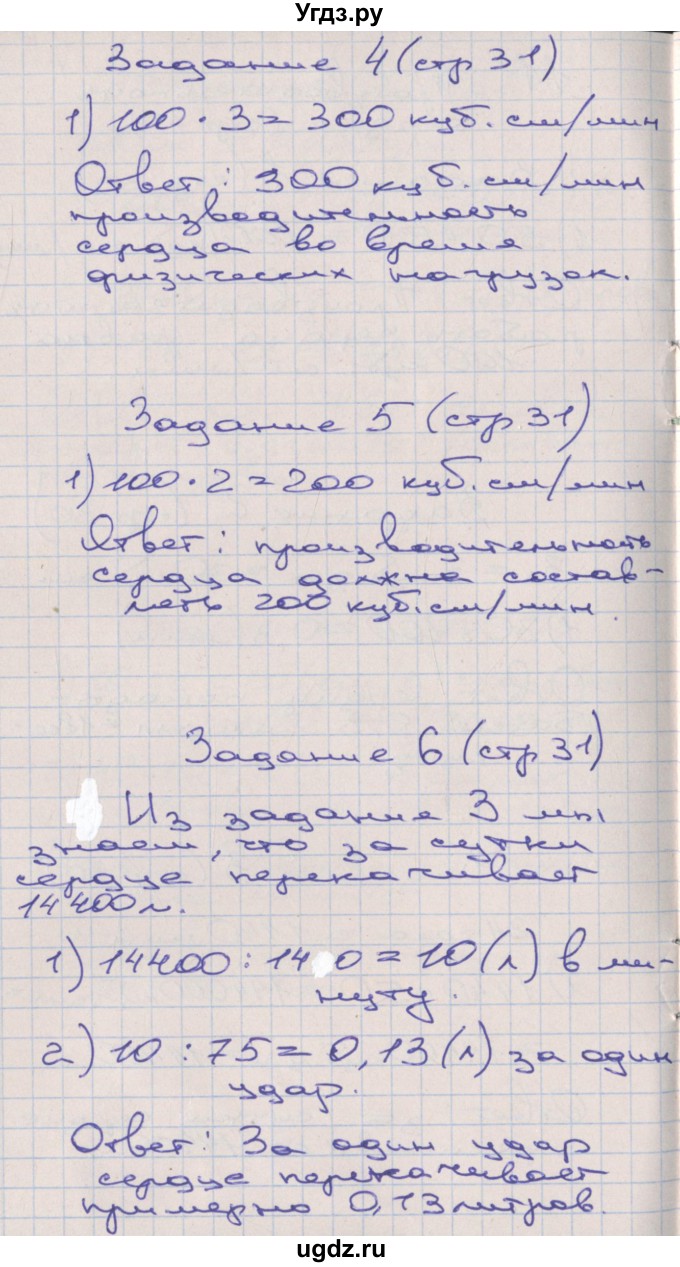 Угдз.ру
Задание 4 (стр 31)
1) 100 · 3 = 300 куб. см/мин
Ответ: 300 куб. см/мин
производительность
сердца во время
физических нагрузок.
Задание 5 (стр. 31)
1) 100 · 2 = 200 куб. см/мин
Ответ: производительность
сердца должна состав-
лять 200 куб. см/мин.
Задание 6 (стр 31)
Из задание 3 мы
знаем, что за сутки
сердце перекачивает
14400 л.
1) 14400 : 14 0 = 10 (л) в ми-
нуту.
2) 10 : 75 = 0,13 (л) за один
удар.
Ответ: За один удар
сердце перекачивает
примерно 0,13 литров.
ugdz.ru